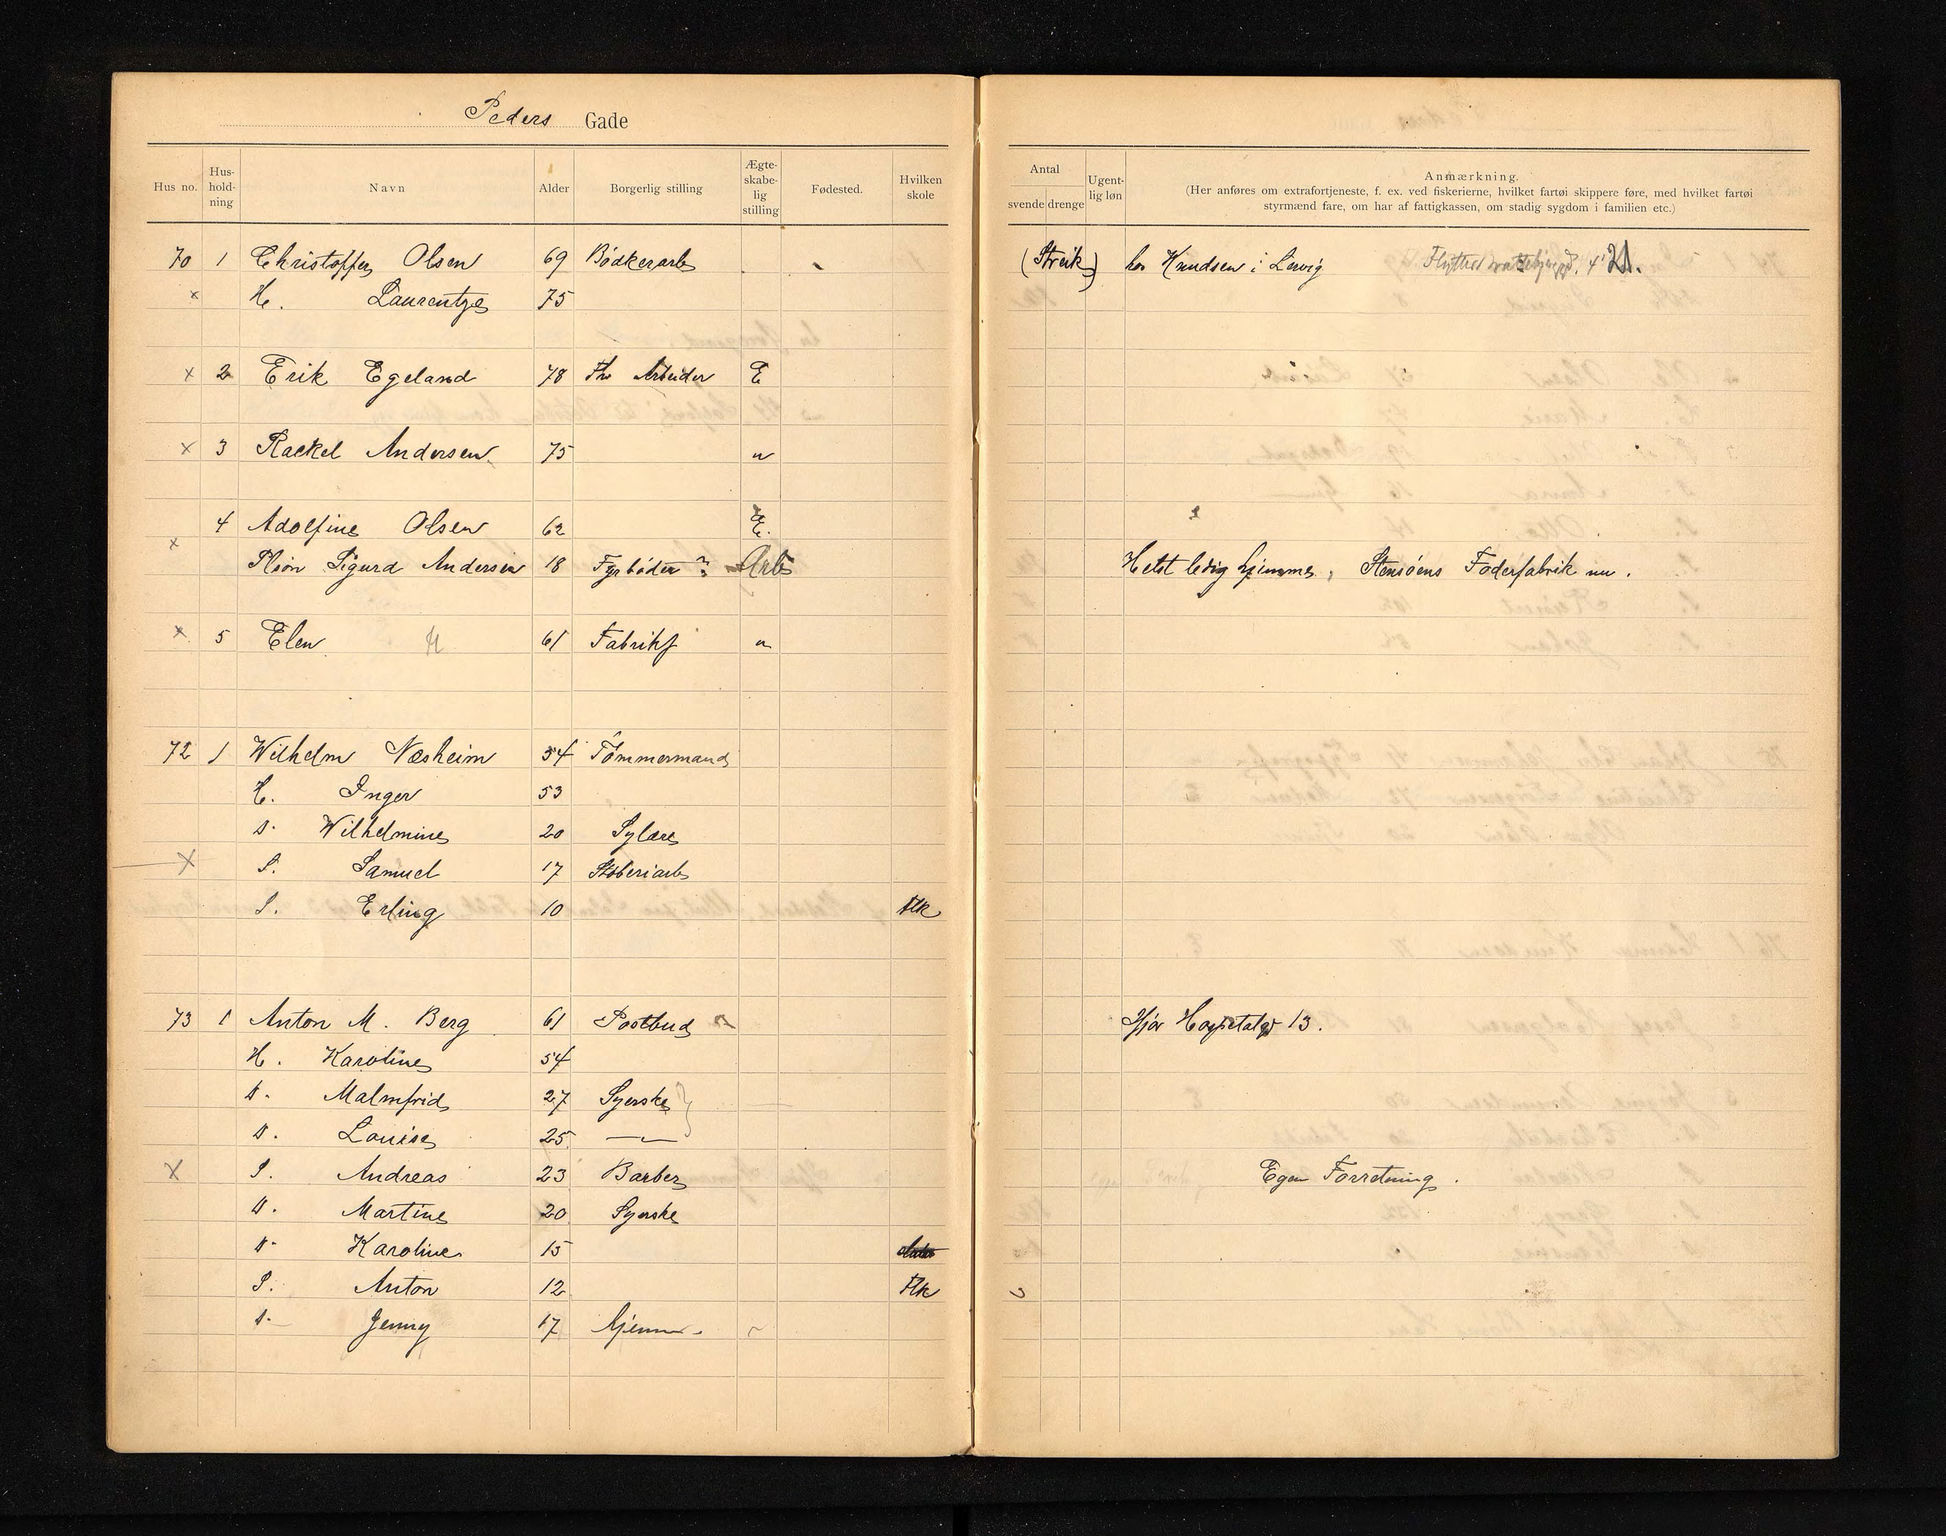 Peders Gade
Hus no. Hus-hold-ning Navn Alder Borgerlig stilling Ægte-skabe-lig stilling Fødested. Hvilken skole Antal svende drenge Ugent-lig løn Anmærkning.
(Her anføres om extrafortjeneste, f. ex. ved fiskerierne, hvilket fartøi skippere føre, med hvilket fartøi
styrmænd fare, om har af fattigkassen, om stadig sygdom i familien etc.)
70 1 Christoffer Olsen 69 Bødkerarb (Streik) hos Knudsen i Lervig Flyttet 21.
x H. Laurentze 75
x 2 Erik Egeland 78 Fhv Arbeider E
x 3 Rackel Andersen 75 "
4 Adolfine Olsen 62 E.
x Sigurd Andersen 18 Fyrbøder ? Arb Helst ledig hjemme, Stensøens Foderfabrik nu.
x 5 Elen 61 Fabrikf "
72 1 Wilhelm Næsheim 54 Tømmermand
H. Inger 53
D. Wilhelmine 20 Sylære
x S. Samuel 17 Støberiarb
S. Erling 10 Flk
73 1 Anton M. Berg 61 Postbud Ifjor Hospitalgd 13.
H. Karoline 54
D. Malmfrid 27 Syerske
D. Louise 25 —"—
X S. Andreas 23 Barber Egen Forretning.
D. Martine 20 Syerske
D. Karoline 15
S. Anton 12 Flk
D. Jenny 17 hjemme